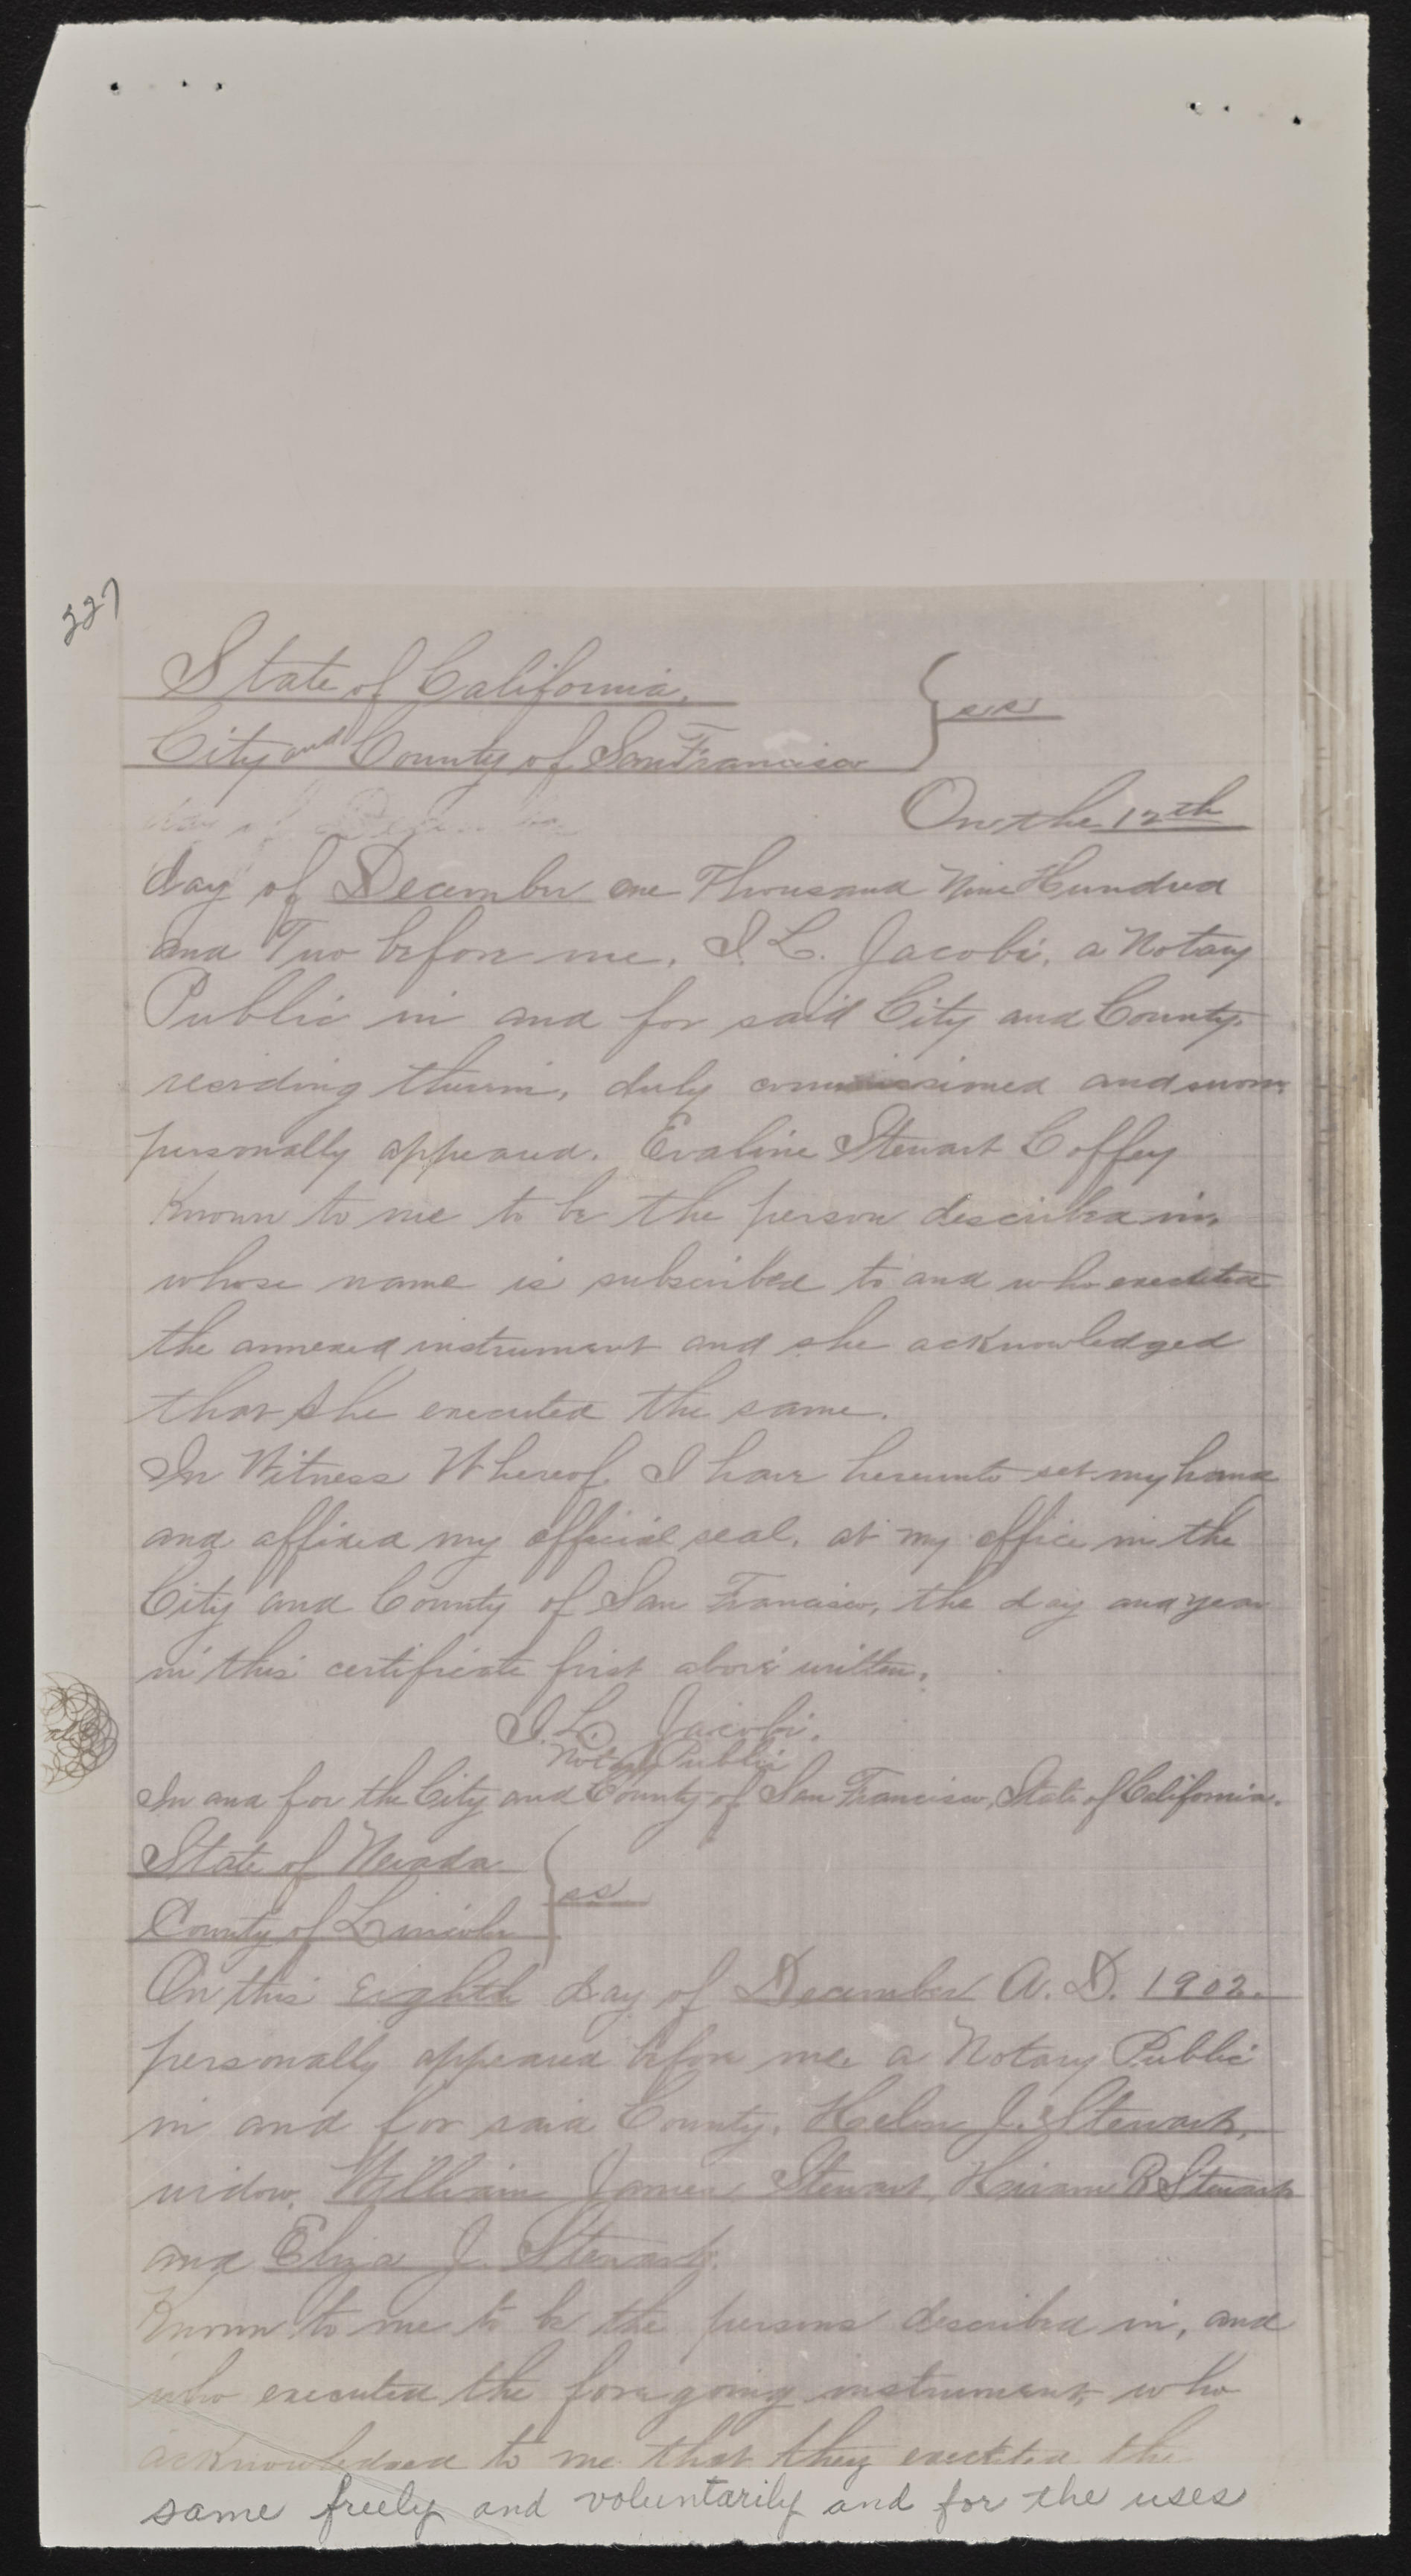 227
State of California,
City and County of San Francisco } ss
On the 12th
day of December one Thousand Nine Hundred
and Two before me, I. L. Jacobi, a Notary
Public in and for said City and County,
residing therein, duly commissioned and sworn
personally appeared. Evaline Stewart Coffey
Known to me to be the person described in,
whose name is subscribed to and who executed
the annexed instrument and she acknowledged
that she executed the same.
In Witness Whereof, I have hereunto set my hand
and affixed my official seal, at my office in the
City and County of San Francisco, the day and year
in this certificate first above written.
I. L. Jacobi.
Notary Public
In and for the City and County of San Francisco, State of California.
State of Nevada
County of Lincoln } ss
On this Eighth day of December A. D. 1902.
personally appeared before me a Notary Public
in and for said County, Helen J. Stewart,
widow, William James Stewart, Hiram R Stewart
and Eliza J. Stewart.
Known to me to be the persons described in, and
who executed the foregoing instrument, who
acknowledged to me that they executed the
same freely and voluntarily and for the uses